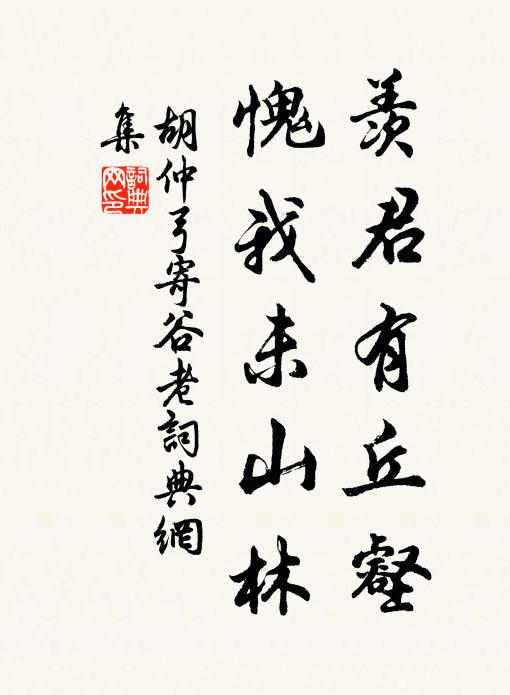 羨君有丘壑
愧我未山林
胡仲弓寄谷老詞典網
集
詞典
网印